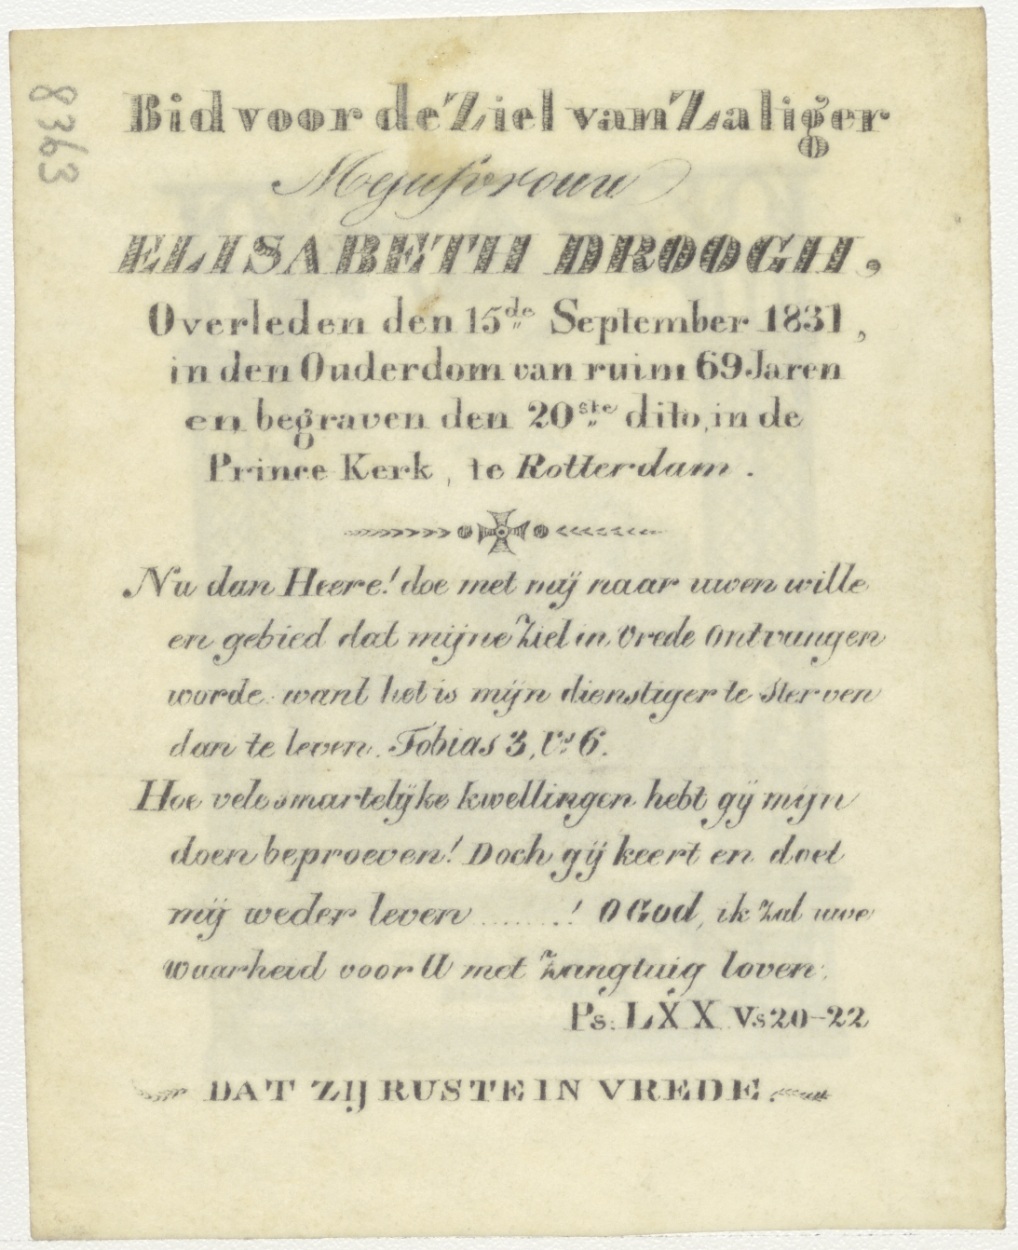 8363
Bid voor de Ziel van Zaliger
Mejufvrouw
ELISABETH DROOGH,
Overleden den 15de September 1831,
in den Ouderdom van ruim 69 Jaren
en begraven den 20ste dito, in de
Prince Kerk, te Rotterdam.
Nu dan Heere! doe met mij naar uwen wille
en gebied dat mijne Ziel in Vrede Ontvangen
worde. want het is mijn dienstiger te Sterven
dan te leven. Tobias 3, Vs 6.
Hoe vele smartelijke kwellingen hebt gij mijn
doen beproeven! Doch gij keert en doet
mij weder leven .......! O God, ik Zal uwe
waarheid voor U met Zangtuig loven.
Ps. LXX Vs 20-22
DAT ZIJ RUSTE IN VREDE.